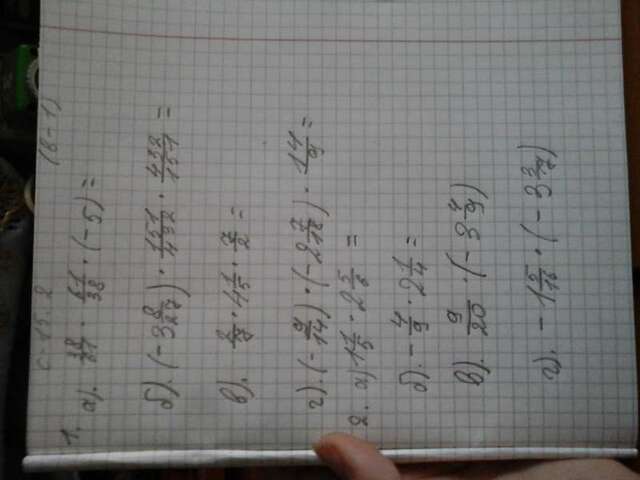 С-15.2 (В-1)
1. а). 38/61 · 61/38 · (-5) =
б). (-3 8/27) · 151/432 · 432/151 =
в). 2/7 · 4 1/5 · 7/2 =
г). (- 9/14) · (-2 7/18) · 14/9 =
2. а) 1 1/5 · 2 5/6 =
б). - 4/9 · 2 1/4 =
в). 9/20 · (-3 4/9)
г). -1 5/16 · (-3 3/7)